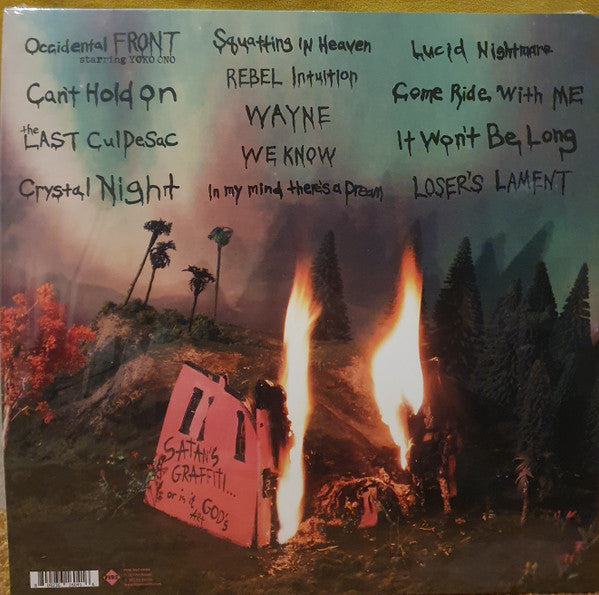 Occidental FRONT
starring YOKO ONO
Can't Hold On
the LAST CulDeSac
Crystal Night
Squatting IN Heaven
REBEL Intuition
WAYNE
WE KNOW
In my mind there's a Dream
Lucid Nightmare
Come Ride With ME
It Won't Be Long
LOSER'S LAMENT
SATAN'S
GRAFFITI...
or is it GOD's
ART